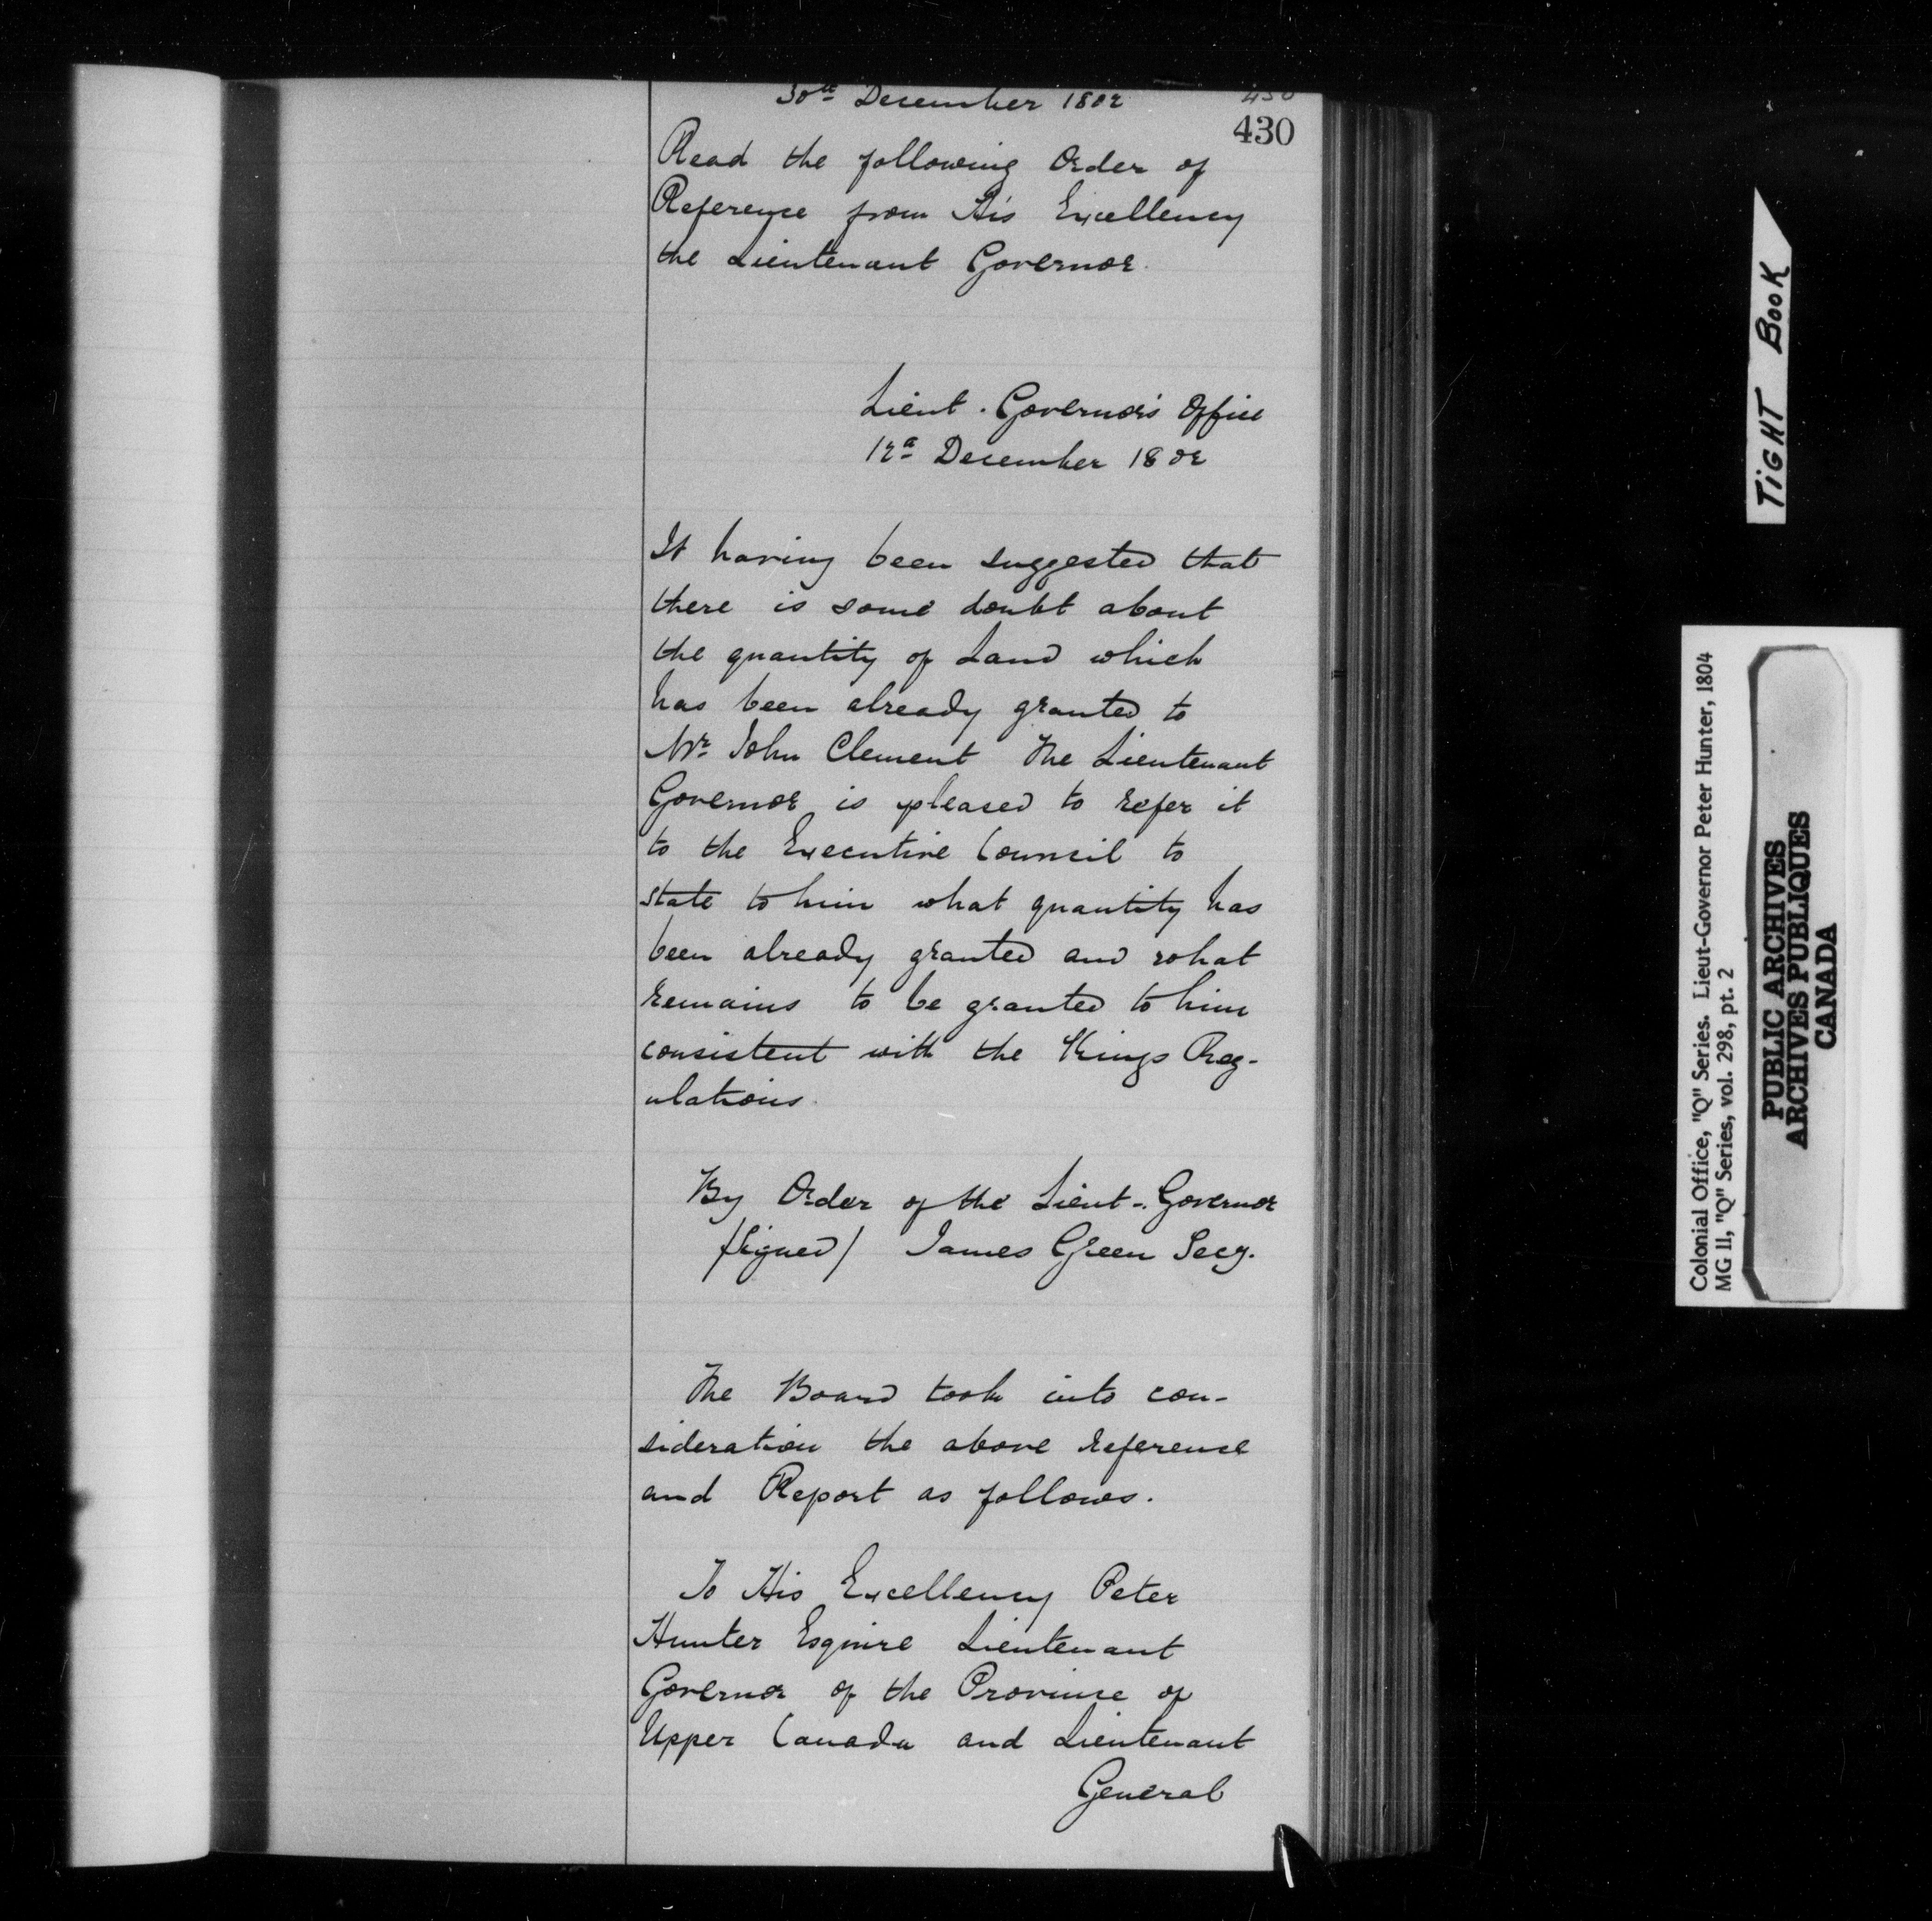 30th December 1802
430
430
Read the following Order of
Reference from His Excellency
the Lieutenant Governor.
Lieut. Governor's Office
December 1802
It having been suggested that
there is some doubt about
the quantity of Land which
has been already granted to
Mr. John Clement The Lieutenant
Governor is pleased to refer it
to the Executive Council to
state to him what quantity has
been already granted and what
remains to be granted to him
consistent with the Kings Reg-
ulations.
By Order of the Lieut-. Governor
(signed) James Green Secy.
The Board took into con-
sideration the above reference
and Report as follows.
To His Excellency Peter
Hunter Esquire Lieutenant
Governor of the Province of
Upper Canada and Lieutenant
General
TIGHT BOOK
Colonial Office, "Q" Series. Lieut-Governor Peter Hunter, 1804
MG 11, "Q" Series, vol. 298, pt. 2
PUBLIC ARCHIVES
ARCHIVES PUBLIQUES
CANADA